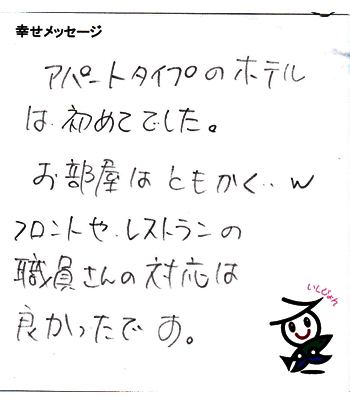 幸せメッセージ
アパートタイプのホテル
は初めてでした。
お部屋はともかく‥w
フロントや、レストランの
職員さんの対応は
良かったです。